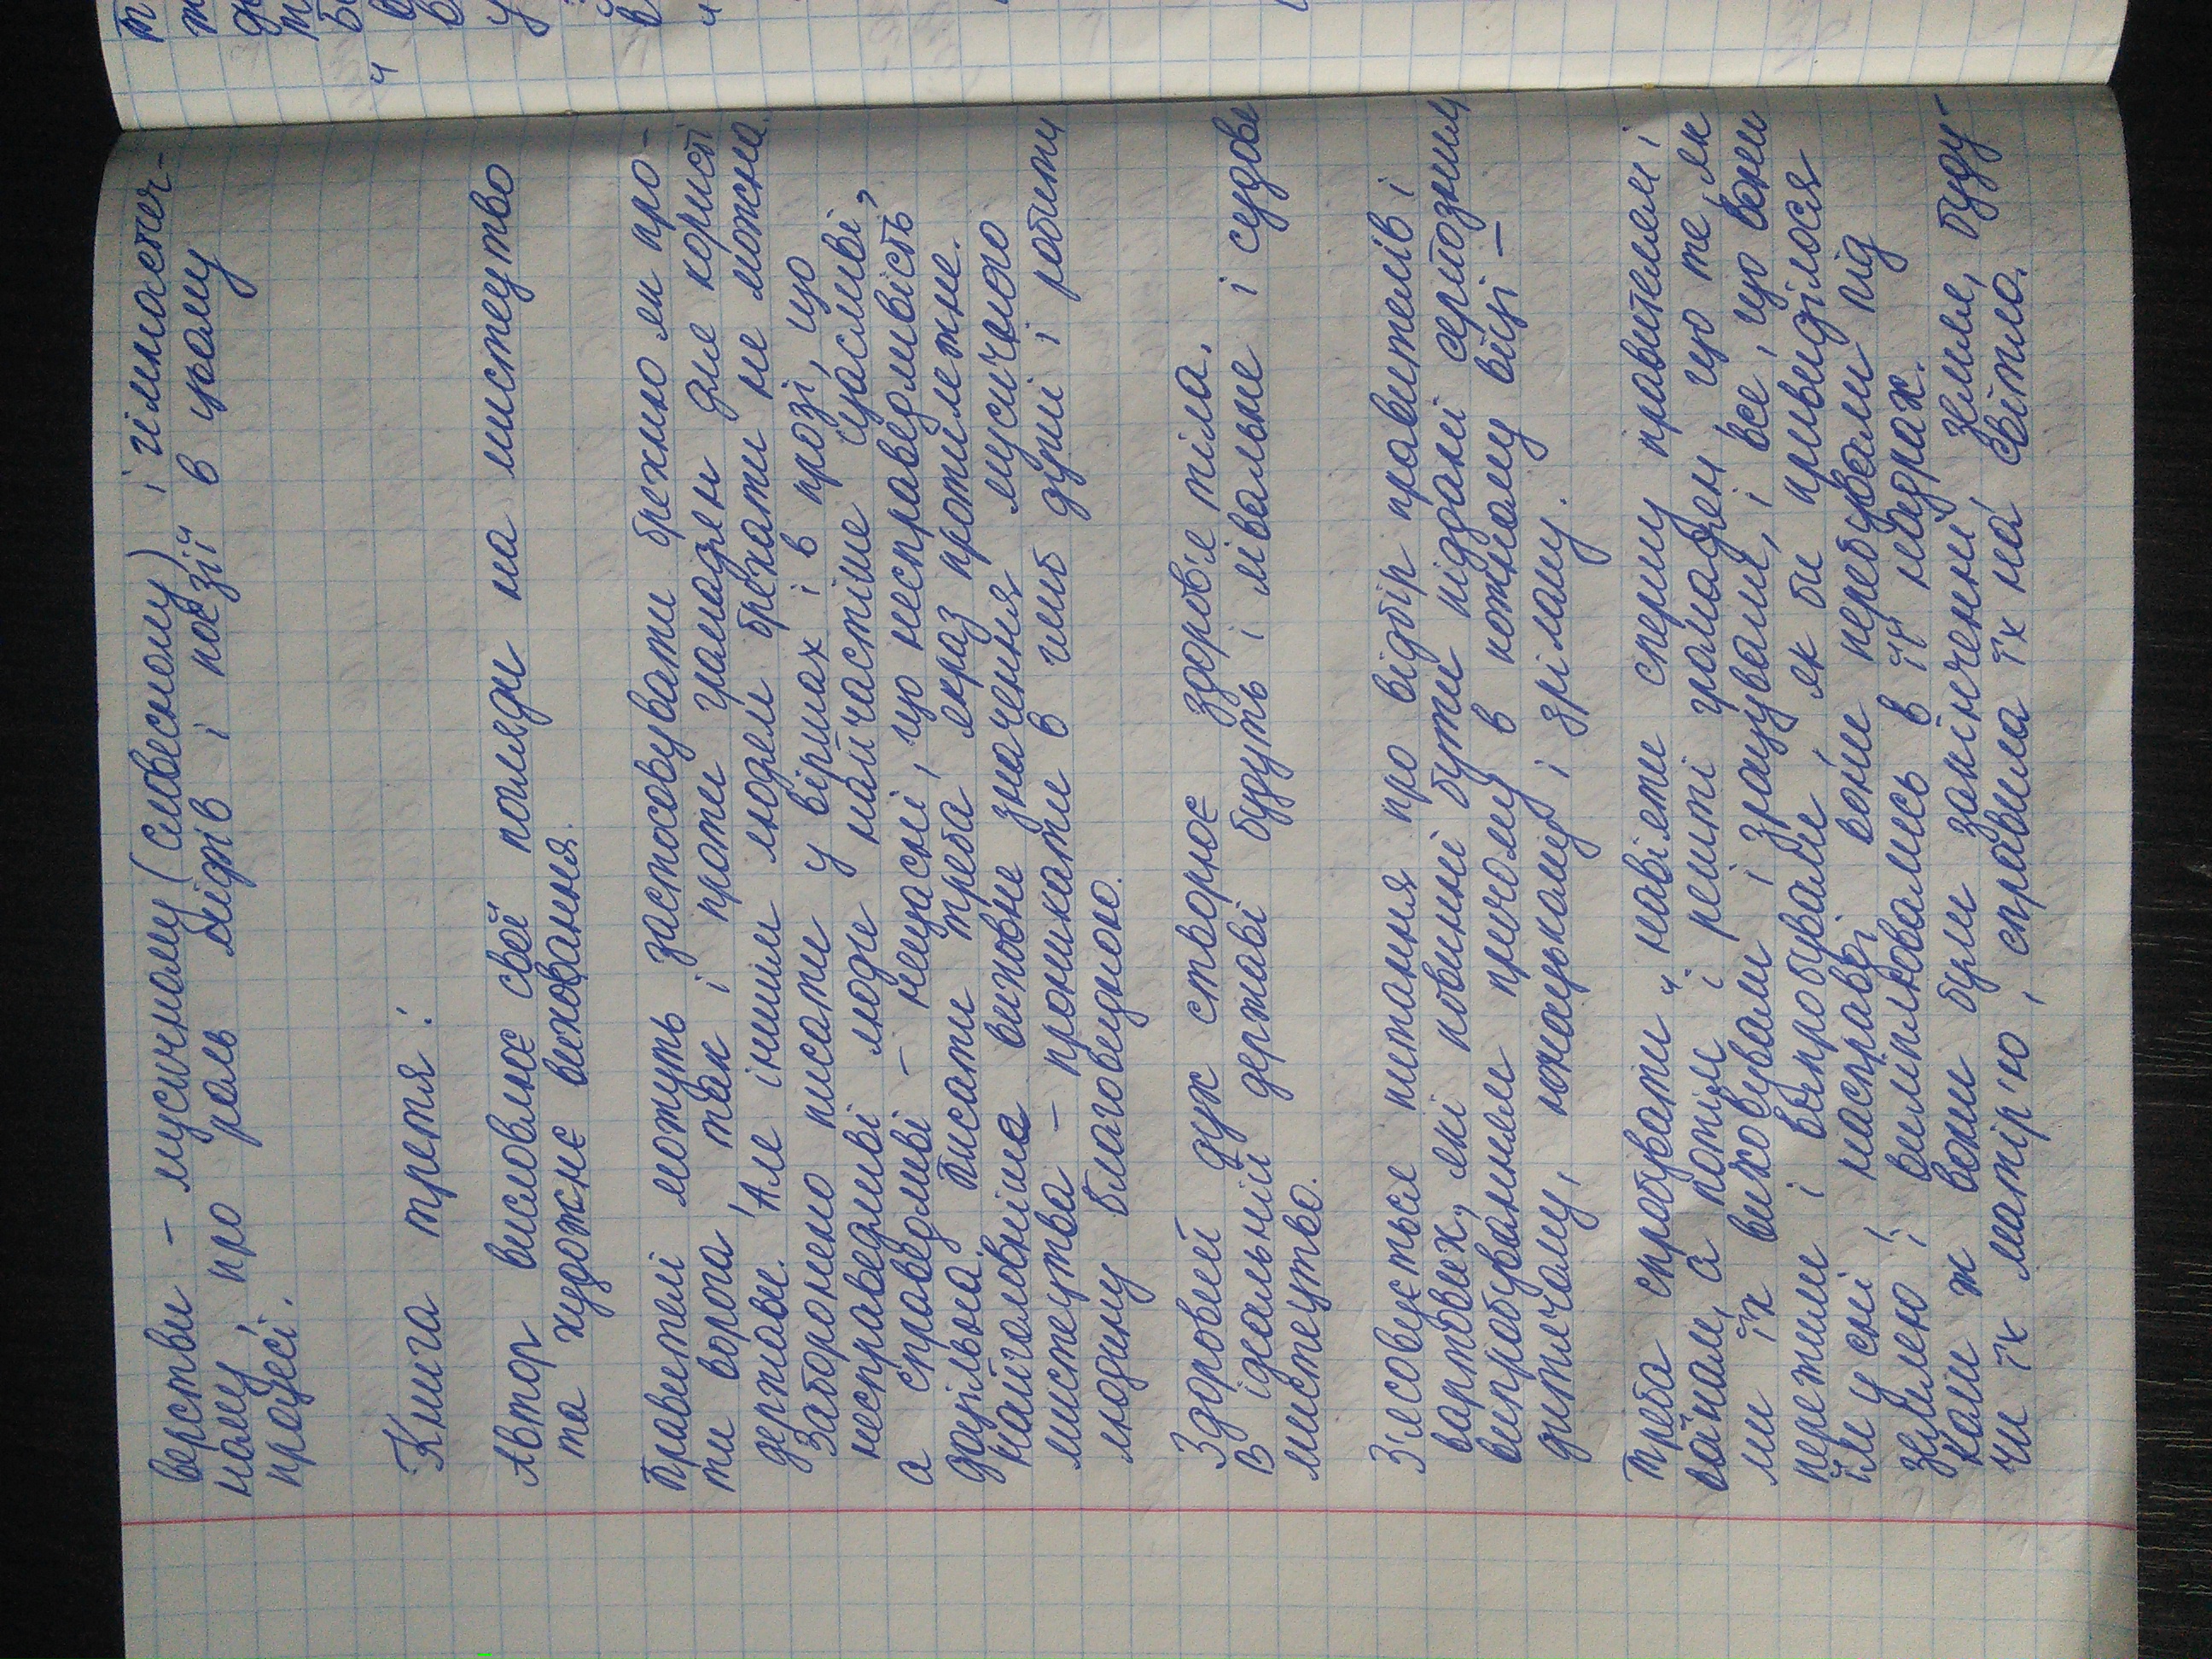 верстви – мусичному (словесному) і гімнастич-
ному, про роль мідрів і поезії в цьому
процесі.
Книга третя:
Автор висловлює свої погляди на мистецтво
та художнє виховання.
Правителі можуть застосовувати брехню як про-
ти ворога так і проти громадян для користі
держави. Але іншим людям брехати не можна.
Заборонено писати у віршах і в прозі, що
несправедливі люди найчастіше щасливі,
а справедливі – нещасні, що несправедливість
доцільна. Писати треба якраз протилежне.
Найголовніше виховне значення мусичного
мистецтва – проникати в глиб душі і робити
людину благовидною.
Здоровий дух створює здоров'є тіла.
В ідеальній державі будуть і лікальне і судове
мистецтво.
З'ясовується питання про відбір правителів і
вартових, які повинні бути піддані серйозним
випробуванням причому в кожному віці –
дитячому, юнацькому і зрілому.
Треба спробувати навіяти спершу правителям і
воїнам, а потім і решті громадян що те, як
ми їх виховували і зрощували, і все, що вони
пережили і випробували, як би привиділося
їм у сні, насправді вони перебували під
землею і виліплювались в її надрах.
Коли ж вони були закінченні, земля, буду-
чи їх матір'ю, справила їх на світло.